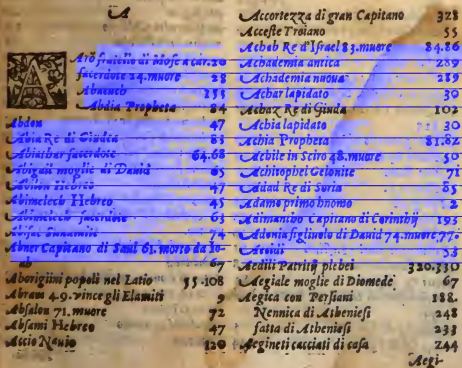 A
Arõ fratello di Mose a car. 20
sacerdote 24. muore 28
Abacuch 155
Abdia Propheta 84
Abdon 47
Abia Re di Giudea 83
Abiathar sacerdote 64.68
Abigail moglie di Dauid 65
Abilon Hebreo 47
Abimelech Hebreo 45
Abimelech sacerdote 63
Abisac Sunamite 74
Abner Capitano di Saul 61. morto da Io-
ab 67
Aborigini popoli nel Latio 55.108
Abram 4.9. vince gli Elamiti 9
Absalon 71. muore 72
Absami Hebreo 47
Accio Nauio 120
Accortezza di gran Capitano 328
Acceste Troiano 55
Achab Re d'Israel 83. muore 84.86
Achademia antica 289
Achademia nuoua 289
Achar lapidato 30
Achaz Re di Giuda 102
Achia lapidato 30
Achia Propheta 81.82
Achile in Sciro 48. muore 50
Achitophel Gelonite 71
Adad Re di Soria 85
Adamo primo homo 2
Adimanto Capitano di Corinthij 195
Adonia figliuolo di Dauid 74. muore 77.
53
Aedili Patritij plebei 320.330
Aegiale moglie di Diomede 67
Aegica con Persiani 188.
Nennica di Atheniesi 248
fatta di Atheniesi 233
Aegineti cacciati di casa 244
Aegi-